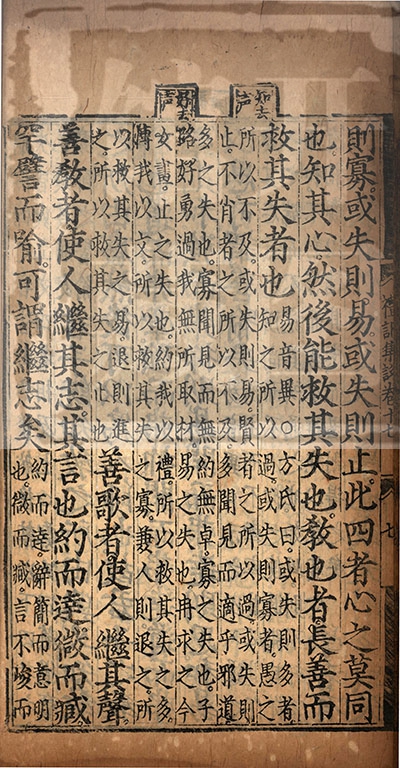 知去声
好去声
則寡。或失則易。或失則止。此四者心之莫同
也。知其心。然後能救其失也。教也者。長善而
救其失者也
易音異○方氏曰。或失則多者。
知之所以過。或失則寡者。愚之
所以不及。或失則易。賢者之所以過。或失則
止。不肖者之所以不及。多聞見而適乎邪道。
多之失也。寡聞見而無約無卓。寡之失也。子
路好勇過我無所取材。易之失也。冉求之今
女畫。止之失也。約我以禮。所以救其失之多。
博我以文。所以救其失之寡。兼人則退之。所
以救其失之易。退則進
之。所以救其失之止也
善歌者使人繼其聲
善教者使人繼其志。其言也約而達。微而臧
罕譬而喻。可謂繼志矣
約而達。辭簡而意明
也。微而臧。言不峻而